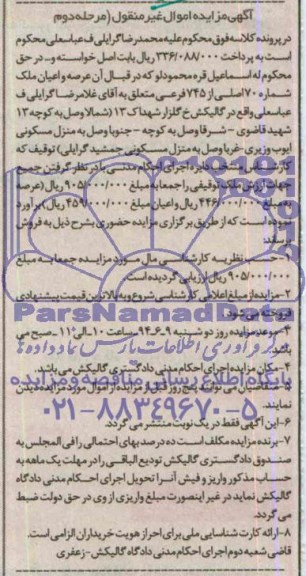 آگهی مزایده اموال غیر منقول (مرحله دوم
در پرونده کلاسه فوق محکوم علیه محمدرضا گرایلی ف عباسعلی محکوم
است به پرداخت ۳۳۶/۰۸۸/۰۰۰ ریال بابت اصل خواسته و... در حق
محکوم له اسماعیل قره محمودلو که در قبال آن عرصه و اعیان ملک
شماره ۷۰ اصلی از ۷۴۵ فرعی متعلق به آقای غلامرضا گرایلی ف
عباسعلی واقع در گالیکش خ گلزار شهدا ک ۱۳ (شمالا وصل به کوچه ۱۳
شهید قاضوی - شرقا وصل به کوچه - جنوبا وصل به منزل مسکونی
ایوب وزیری - غربا وصل به منزل مسکونی جمشید گرایلی) توقیف که
کارشناس منتخب دایره اجرای احکام مدنی با در نظر گرفتن جمیع
جهات ارزش ملک توقیفی را جمعا به مبلغ ۹۰۵/۰۰۰/۰۰۰ ریال (عرصه
به مبلغ ۴۴۶/۰۰۰/۰۰۰ ریال و اعیان مبلغ ۴۵۹/۰۰۰/۰۰۰ ریال) برآورد
نموده است که از طریق برگزاری مزایده حضوری بشرح ذیل به فروش
برسد:
۱- حسب نظریه کارشناسی مال مورد مزایده جمعا به مبلغ
۹۰۵/۰۰۰/۰۰۰ ریال ارزیابی گردیده است
۲- مزایده از مبلغ اعلامی کارشناسی شروع و به بالاترین قیمت پیشنهادی
فروخته می شود
۳- موعد مزایده روز دوشنبه ۹-۶-۹۴ ساعت ۱۰ الی ۱۱ صبح می
باشد
۴- مکان مزایده اجرای احکام مدنی دادگستری گالیکش می باشد.
۵- متقاضیان می توانند پنج روز قبل از مزایده از اموال مورد مزایده دیدن
نمایند.
۶- این آگهی فقط در یک نوبت منتشر می گردد.
۷- برنده مزایده مکلف است ده درصد بهای احتمالی را فی المجلس به
صندوق دادگستری گالیکش تودیع الباقی را در مهلت یک ماهه به
حساب مذکور واریز و فیش آنرا تحویل اجرای احکام مدنی دادگاه
گالیکش نماید در غیر اینصورت مبلغ واریزی از وی در حق دولت ضبط
می گردد.
۸- ارائه کارت شناسایی ملی برای احراز هویت خریداران الزامی است.
قاضی شعبه دوم اجرای احکام مدنی دادگاه گالیکش - زعفری
ParsNamadData
مرکز فرآوری اطلاعات پارس نماد داده ها
پایگاه اطلاع رسانی مناقصه و مزایده
۰۲۱-۸۸۳۴۹۶۷۰-۵